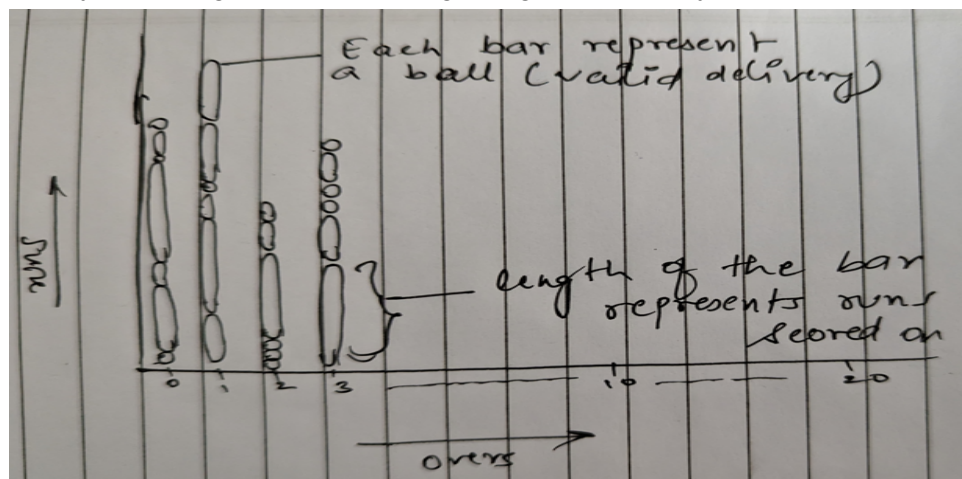 Each bar represent
a ball (valid delivery)
runs
length of the bar
represents runs
scored on
0 1 2 3 10 20
overs